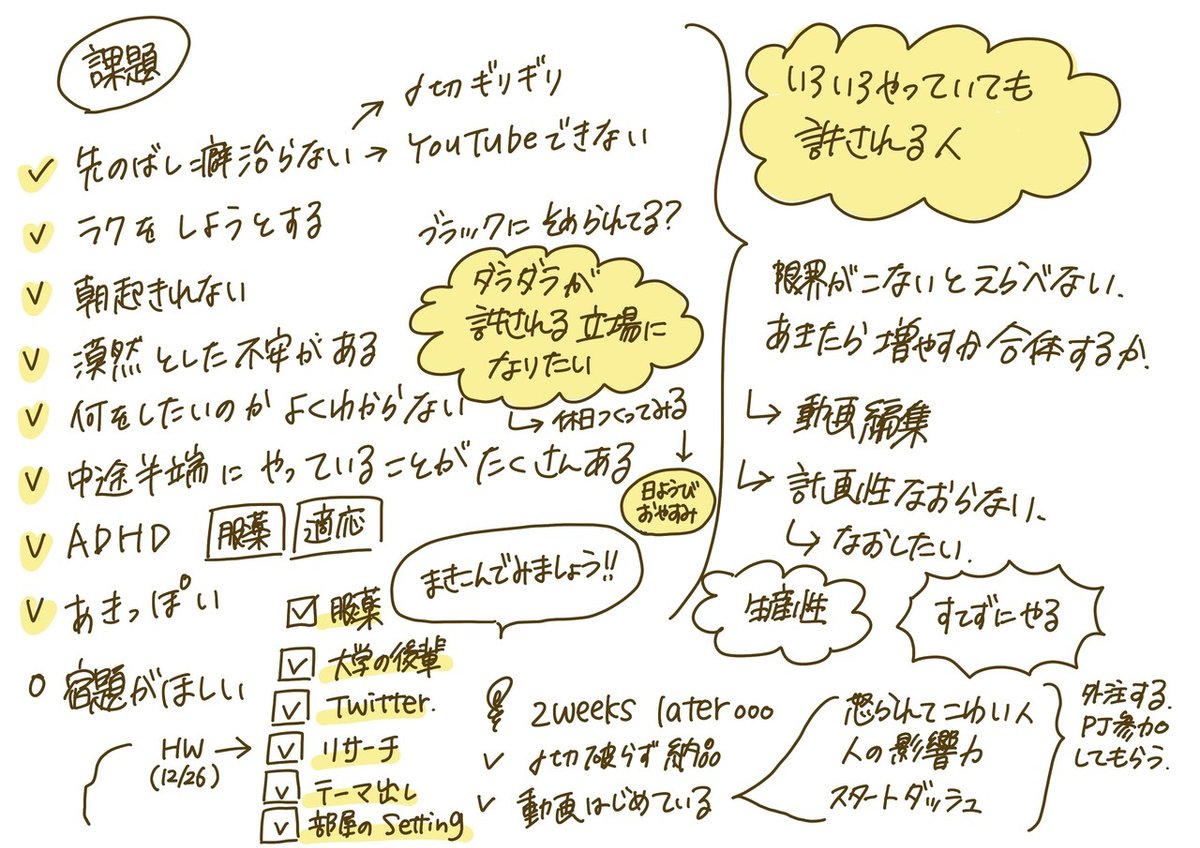 課題
先のばし癖治らない
〆切ギリギリ
YouTubeできない
ラクをしようとする
朝起きれない
漠然とした不安がある
何をしたいのかよくわからない
中途半端にやっていることがたくさんある
ADHD 服薬 適応
あきっぽい
宿題がほしい
HW
(12/26)
服薬
大学の後輩
Twitter.
リサーチ
テーマ出し
部屋のSetting
ブラックにそめられてる?
ダラダラが
許される立場に
なりたい
休日つくってみる
日ようび
おやすみ
まきこんでみましょう!!
2weeks later...
〆切破らず納品
動画はじめている
怒られてこわい人
人の影響力
スタートダッシュ
外注する.
PJ参加
してもらう.
いろいろやっていても
許される人
限界がこないとえらべない.
あきたら増やすか合体するか.
動画編集
計画性なおらない.
なおしたい.
生産性
すてずにやる